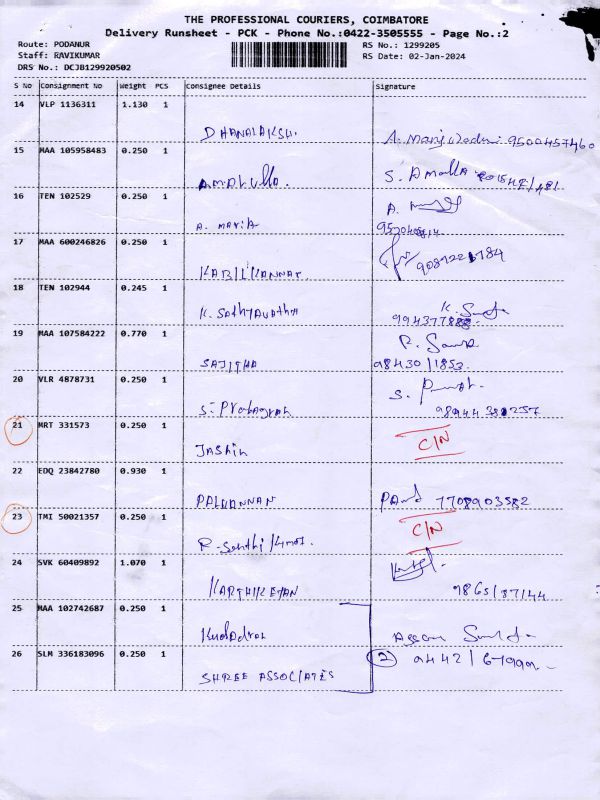 THE PROFESSIONAL COURIERS, COIMBATORE
Delivery Runsheet - PCK - Phone No.:0422-3505555 - Page No.:2
Route: PODANUR
RS No.: 1299205
Staff: RAVIKUMAR
RS Date: 02-Jan-2024
DRS No.: DCJB129920502
S No Consignment No Weight PCS Consignee Details Signature
14 VLP 1136311 1.130 1
DHANALAKSHI. A. 9500457460
15 MAA 105958483 0.250 1
AMATULLA. S. Amalla
16 TEN 102529 0.250 1
A. MARIA A.
17 MAA 600246826 0.250 1
KABILKANNAN
18 TEN 102944 0.245 1
K. Sathyavathi K.
19 MAA 107584222 0.770 1
SAJITHA 98430/1853
20 VLR 4878731 0.250 1
S. S.
21 MRT 331573 0.250 1
Jashin C/N
22 EDQ 23842780 0.930 1
PALVANNAN 7708903582
23 TMI 50021357 0.250 1
R. Senthil Kumar. C/N
24 SVK 60409892 1.070 1
KARTHIKEYAN 9865/37/44
25 MAA 102742687 0.250 1
26 SLM 336183096 0.250 1
SHREE ASSOCIATES 2